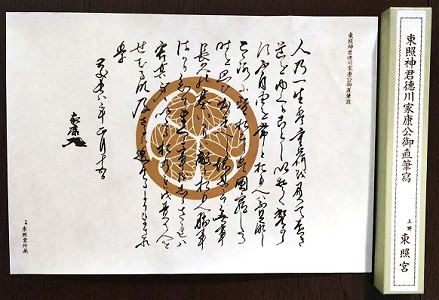 東照神君徳川家康公御直筆寫
上野 東照宮
東照神君徳川家康公御直筆寫
人乃一生は重荷を負て遠き
道をゆくかことしいそくへからす
不自由を常とおもへは不足なし
こころに望おこらは困窮したる
時を思ひ出すへし堪忍は無事
長久の基いかりは敵とおもへ勝事
はかり知てまくる事をしらされは
害其身にいたるおのれを責て人を
せむるな及はさるは過たるよりまされ
り
家康
東照宮所蔵